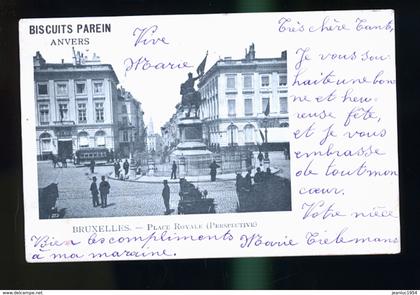 BISCUITS PAREIN
ANVERS
Vive
Marie
Très chère Tante,
Je vous sou-
haite une bon
ne et heu-
reuse fête,
et je vous
embrasse
de tout mon
cœur.
Votre nièce
Marie Tielemans
BRUXELLES. — PLACE ROYALE (PERSPECTIVE)
Bien les compliments
à ma marraine.
www.delcampe.net
jeanluc1954